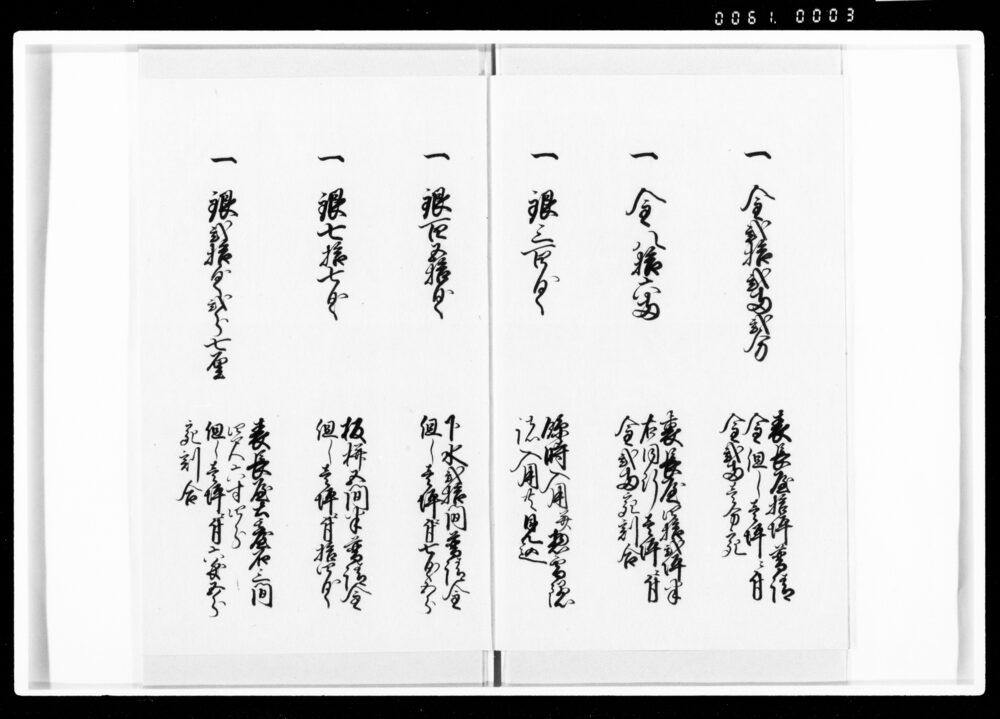 0061. 0003
一 金弐拾弐両弐分
表長屋拾坪普請
金但し壱坪ニ付
金弐両壱分宛
一 金八拾六両
裏長屋四拾弐坪半
右同断壱坪ニ付
金弐両宛割合
一 銀三百目
臨時入用并惣雪隠
諸入用共見込
一 銀百五拾目
下水弐拾間普請金
但し壱坪ニ付七匁五分
一 銀七拾七匁
板塀五間半普請金
但し壱坪ニ付拾四匁
一 銀弐拾目弐分七厘
表長屋上家石三間
四尺六寸四分
但し壱坪ニ付六匁五分
宛割合